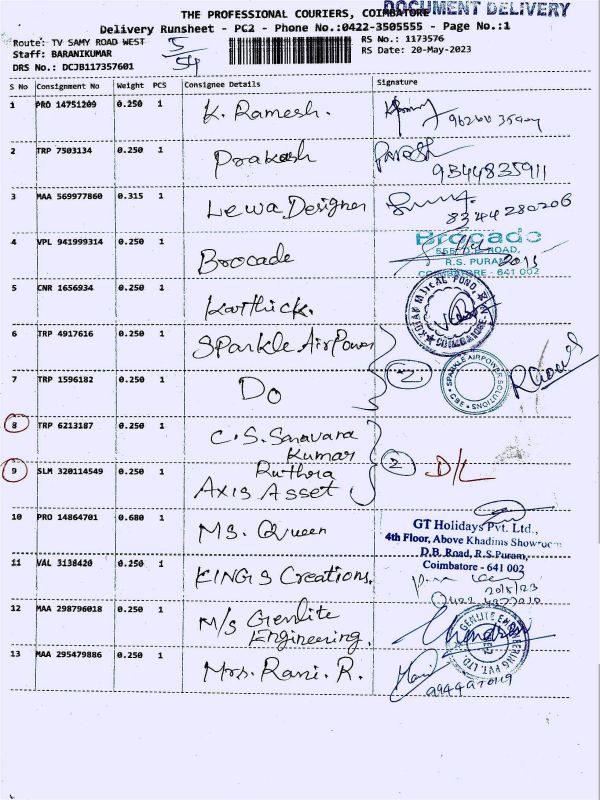 DOCUMENT DELIVERY
THE PROFESSIONAL COURIERS, COIMBATORE
Delivery Runsheet - PC2 - Phone No.:0422-3505555 - Page No.:1
Route: TV SAMY ROAD WEST 5/54 RS No.: 1173576
Staff: BARANIKUMAR RS Date: 20-May-2023
DRS No.: DCJB117357601
S No Consignment No Weight PCS Consignee Details Signature
1 PRO 14751209 0.250 1 K. Ramesh.
2 TRP 7503134 0.250 1 Prakash 9344835911
3 MAA 569977860 0.315 1 Lewa Designer 8344280206
4 VPL 941999314 0.250 1 Brocade Brocade
R.S. PURAM
COIMBATORE - 641 002
5 CNR 1656934 0.250 1 Karthick. COIMBATORE
6 TRP 4917616 0.250 1 Sparkle AirPower 2 SPARKLE AIRPOWER SOLUTIONS CBE
7 TRP 1596182 0.250 1 Do
8 TRP 6213187 0.250 1 C.S. Saravana
Kumar
9 SLM 320114549 0.250 1 Ruthra 2 D/L
Axis Asset
10 PRO 14864701 0.680 1 Ms. Queen GT Holidays Pvt. Ltd.,
4th Floor, Above Khadims Showroom
D.B. Road, R.S.Puram,
Coimbatore - 641 002
11 VAL 3138420 0.250 1 KINGS Creations.
12 MAA 298796018 0.250 1 M/s Genlite
Engineering. GENLITE ENGINEERING PVT. LTD.
13 MAA 295479886 0.250 1 Mrs. Rani. R.